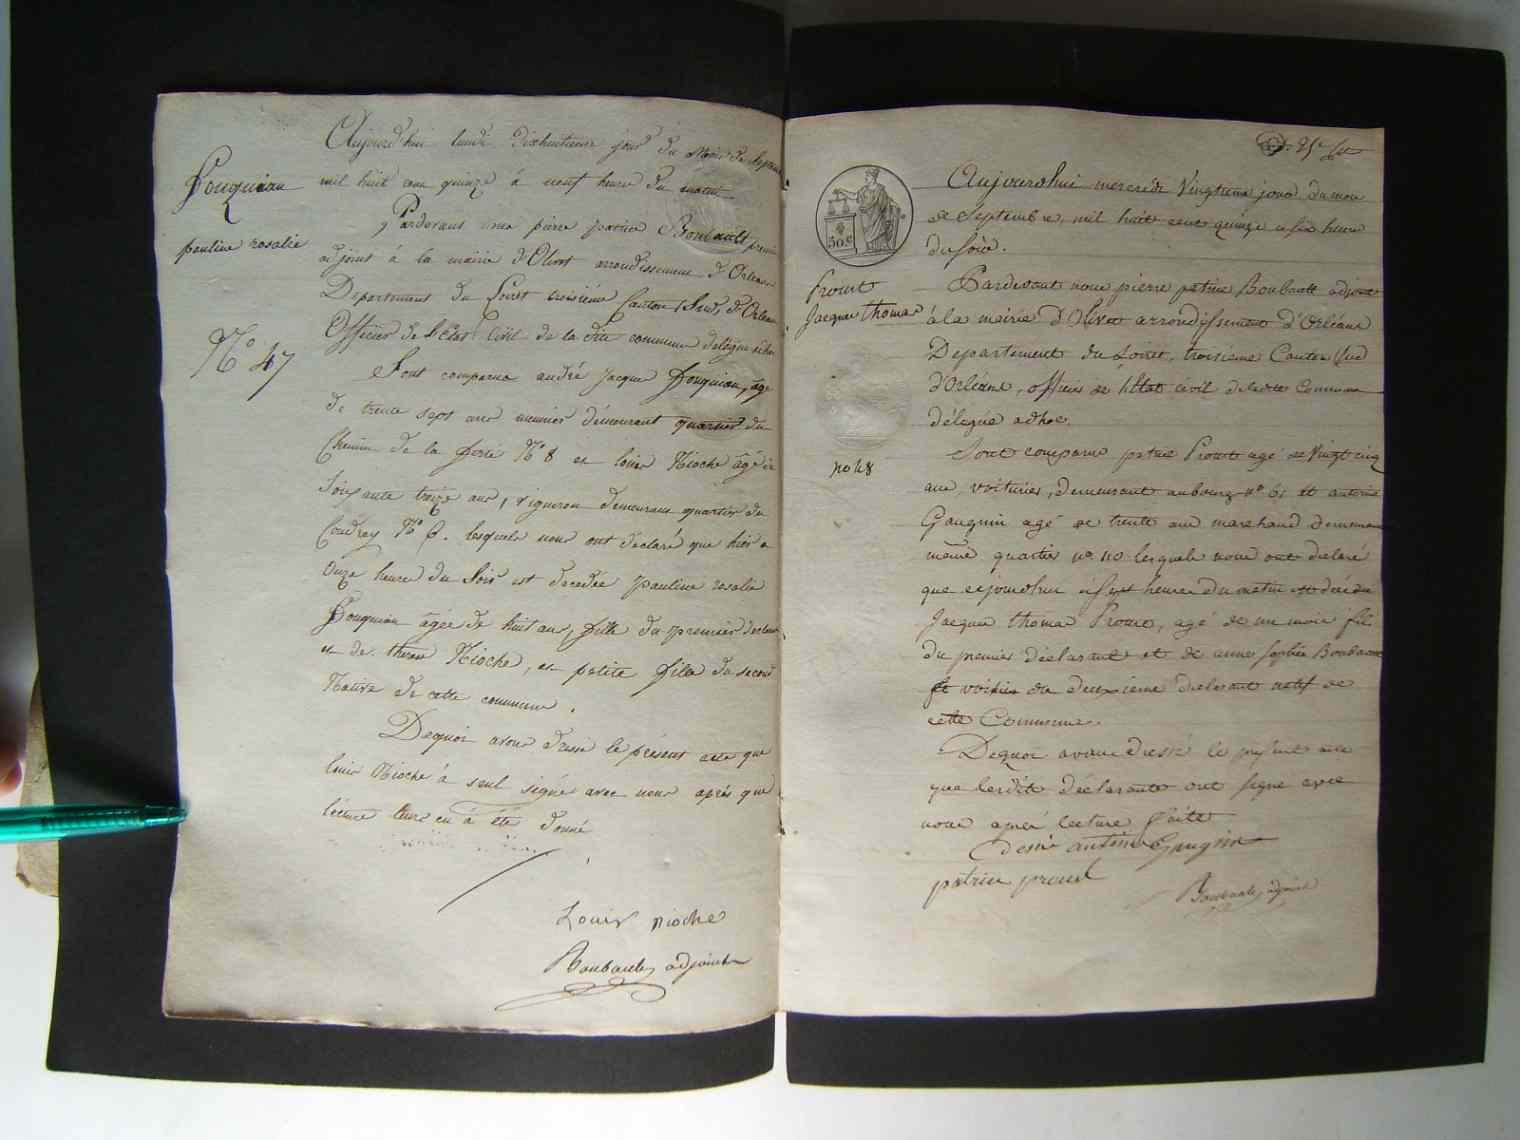 Fouquiau
pauline rosalie
N° 47
Aujourd'hui lundi dixhuitieme jour du mois de Septem
mil huit cent quinze à neuf heure du matin
Pardevant nous pierre patrice Boubault premier
adjoint à la mairie d'Olivet arrondissement d'Orleans
Departement du Loiret troisième Canton Sud d'Orleans
Officier de l'état Civil de la dite commune délégué
Sont comparus andré jacque Fouquiau, agé
de trente sept ans meunier demeurant quartier du
Chemin de la ferté N° 8 et louis Nioche agé de
Soixante treize ans, vigneron demeurant quartier du
Coudray N° 6. lesquels nous ont déclaré que hier a
Onze heure du Soir est decedée pauline rosalie
Fouquiau agée de huit ans, fille du premier declarant
et de therese Nioche, et petite fille du second
Native de cette commune.
Dequoi avons dressé le présent acte que
louis Nioche à seul signé avec nous après que
lecture leurs en à été donné
Louis nioche
Boubault adjoint
25e
50 c
Prout
Jacque thomas
no 48
Aujourdhui mercredi Vingtieme jour du mois
de Septembre mil huit cent quinze a six heure
du soir.
Pardevant nous pierre patrice Boubault adjoint
à la mairie d'Olivet arrondissement d'Orléans
Departement du Loiret, troisieme Canton Sud
d'Orléans, officier de l'état civil de ladite Commune
délégué adhoc.
Sont comparus patrice Prout agé de Vingt cinq
ans, voiturier, demeurant au bourg n° 61 et antoine
Gaugnin agé de trente ans marchand demeurant
même quartier no 110 lesquels nous ont declaré
que cejourdhui a sept heures du matin est décédé
Jacque thomas Prout, agé de un mois fils
du premier déclarant et de anne sophie Boubault
et voisin du deuxieme declarant natif de
cette Commune.
Dequoi avons dressé le présent acte
que lesdits déclarants ont signé avec
nous après lecture faite
antoine Gaugnin
patrice proust
Boubault adjoint